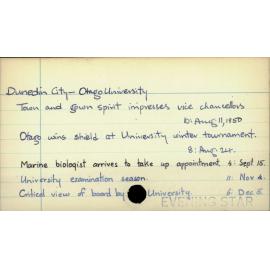 Dunedin City - Otago University
Town and gown spirit impresses vice chancellors
10: Aug 11, 1950
Otago wins shield at University winter tournament.
8: Aug 24.
Marine biologist arrives to take up appointment 4: Sept 15.
University examination season. 11: Nov 2.
Critical view of board by University. 6: Dec 5
EVENING STAR